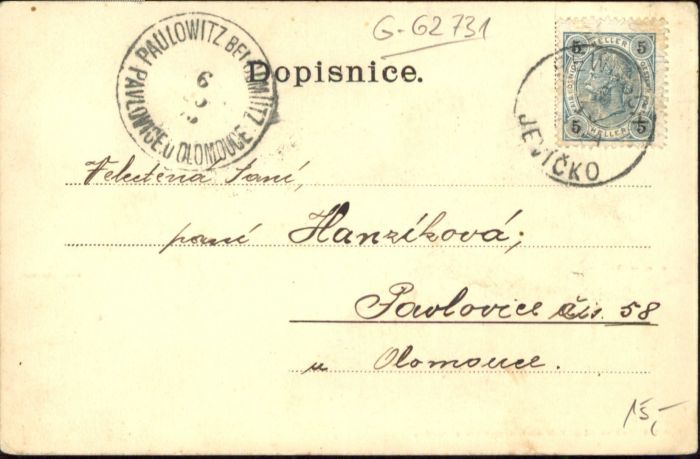 G-G2731
PAULOWITZ BEI OLMÜTZ
PAVLOVICE u OLOMOUCE
6
Dopisnice.
5 HELLER 5
5 HELLER 5
JEVÍČKO
Velectěná Paní,
paní Hanzíková;
Pavlovice čís. 58
u Olomouce.
15,-